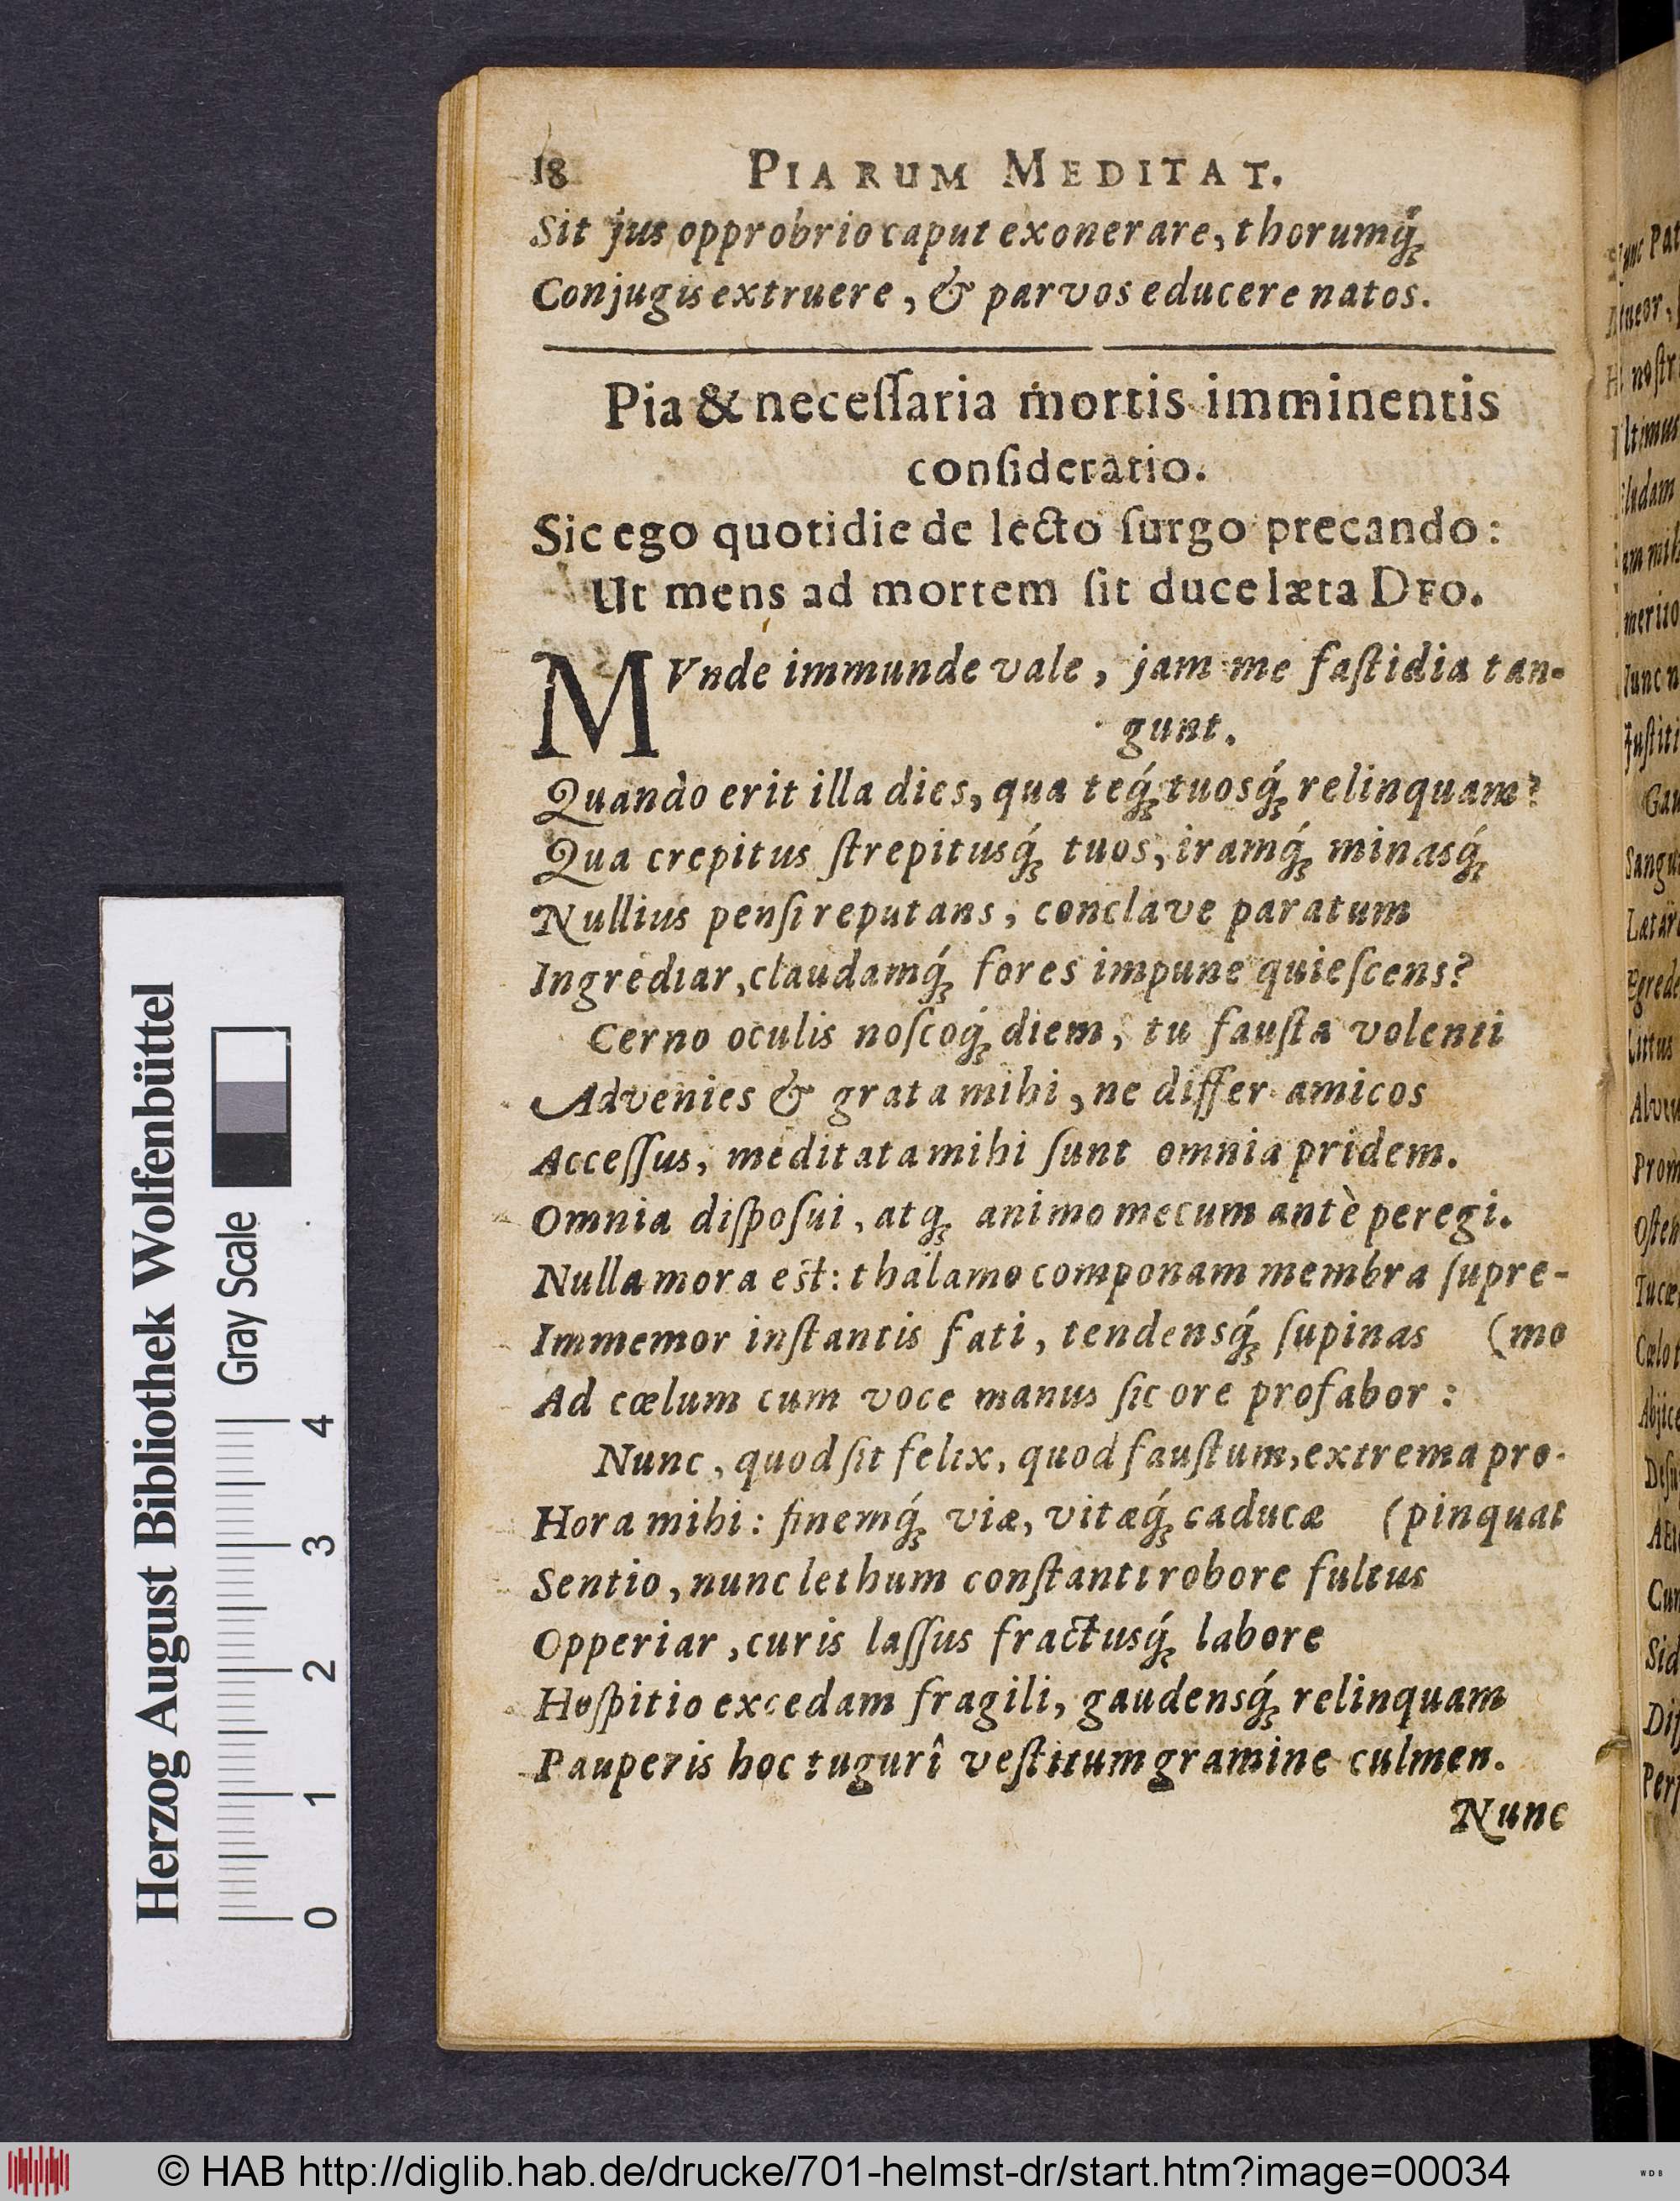 18 PIARUM MEDITAT.
Sit jus opprobrio caput exonerare, thorumq́ꝫ
Conjugis extruere, & parvos educere natos.
Pia & neceſſaria mortis imminentis
conſideratio.
Sic ego quotidie de lecto ſurgo precando:
Ut mens ad mortem ſit duce læta DEO.
MVnde immunde vale, jam me faſtidia tan-
gunt.
Quando erit illa dies, qua teq́ꝫ tuosq́ꝫ relinquam?
Qua crepitus ſtrepitusq́ꝫ tuos, iramq́ꝫ minasq́ꝫ
Nullius penſi reputans, conclave paratum
Ingrediar, claudamq́ꝫ fores impune quieſcens?
Cerno oculis noſcoq́ꝫ diem, tu fauſta volenti
Advenies & grata mihi, ne differ amicos
Acceſſus, meditata mihi ſunt omnia pridem.
Omnia diſpoſui, atqꝫ animo mecum antè peregi.
Nulla mora eſt: thalamo componam membra ſupre-
Immemor inſtantis fati, tendensq́ꝫ ſupinas (mo
Ad cœlum cum voce manus ſic ore profabor:
Nunc, quod ſit felix, quod fauſtum, extrema pro-
Hora mihi: finemq́ꝫ viæ, vitæq́ꝫ caducæ (pinquat
Sentio, nunc lethum conſtanti robore fultus
Opperiar, curis laſſus fractusq́ꝫ labore
Hoſpitio excedam fragili, gaudensq́ꝫ relinquam
Pauperis hoc tugurî veſtitum gramine culmen.
Nunc
Herzog August Bibliothek Wolfenbüttel
Gray Scale
0 1 2 3 4
© HAB http://diglib.hab.de/drucke/701-helmst-dr/start.htm?image=00034
WDB